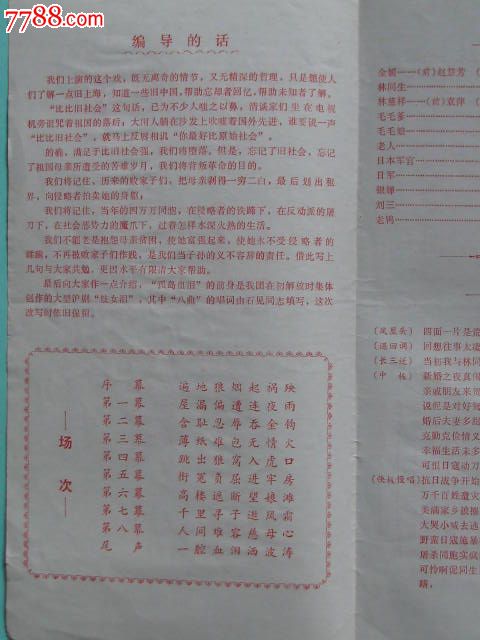 7788.com
编导的话
我们上演的这个戏，既无离奇的情节，又无精深的哲理，只是想使人
们了解一点旧上海，知道一些旧中国，帮助忘却者回忆，帮助未知者了解。
“比比旧社会”这句话，已为不少人嗤之以鼻，清谈家们坐在电视
机旁诅咒着祖国的落后；大河人躺在沙发上吹嘘着国外先进，谁要说一声
“比比旧社会”，就马上反唇相讥“你最好比原始社会”。
的确，满足于比旧社会强，我们将堕落。但是，忘记了旧社会，忘记
了祖国母亲所遭受的苦难岁月，我们将背叛革命的目的。
我们将记住，历来的败家子们，把母亲剥得一穷二白，最后划出租
界，向侵略者拍卖她的身躯，
我们将记住，当年的四万万同胞，在侵略者的铁蹄下，在反动派的屠
刀下，在社会恶势力的魔爪下，过着怎样水深火热的生活。
我们不能老是抱怨母亲贫困，使她富强起来，使她永不受侵略者的
蹂躏，不再被败家子们作践，是我们当子孙的义不容辞的责任。借此写上
几句与大家共勉，更因水平有限请大家帮助。
最后向大家作一点介绍，“孤岛血泪”的前身是我团在初解放时集体
创作的大型沪剧“妓女泪”，其中“八曲”的唱词由石见同志填写，这次
改写时依旧保留。
场次
序幕 遍地狼烟起祸殃
第一幕 屋漏偏遭连夜雨
第二幕 含耻忍辱吞金钩
第三幕 薄纸难包无情火
第四幕 跳出狼窝入虎口
第五幕 街冤负屈进牢房
第六幕 高楼遮断望娘滩
第七幕 千里寻子逛风霜
第八幕 人间难容慈母心
尾声 一腔血泪洒波涛
金媚——（前）赵慧芳
林同生
林慈祥——（前）袁萍
毛毛爹
毛毛娘
老人
日本军官
日军
银婵
刘三
老鸨
（凤凰头） 四面一片是荒
（迴回调） 回想往事太遭
（长三迂） 当初我与林同
（中板） 新婚之夜真個
亲戚朋友来贺
说但是对好夫
婚后夫妻多甜
克勤克俭情义
幸福生活未多
可恨日寇动刀
（快板慢唱）抗日战争开始
万千百姓遭灾
美满家乡被摧
大哭小喊去逃
野蛮日寇施暴
屠杀同胞实疯
可怜啊侃同生
瞎，